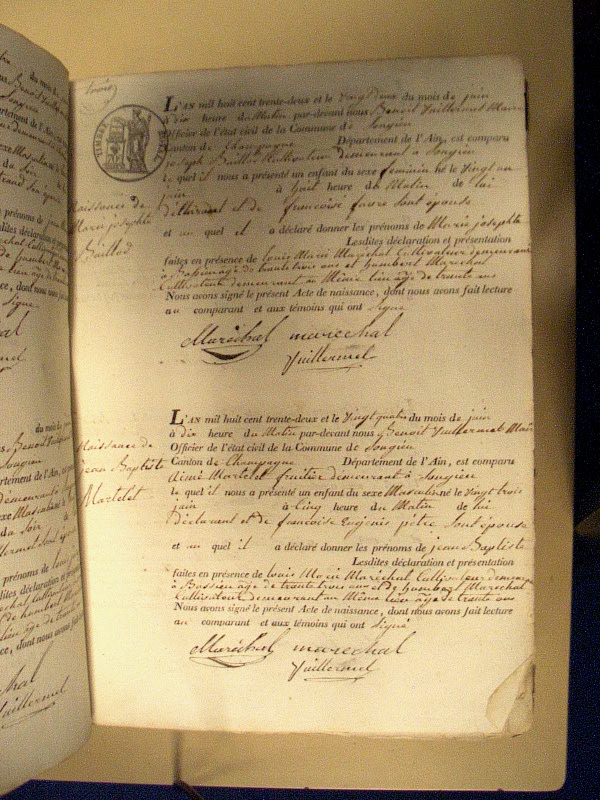 trois
TIMBRE ROYAL
L'AN mil huit cent trente-deux et le vingt deux du mois de juin
à dix heure du Matin par-devant nous Benoit Vuillermet Maire
Officier de l'état civil de la Commune de Songieu
Canton de Champagne Département de l'Ain, est comparu
joseph Baillod Cultivateur demeurant à Songieu
le quel il nous a présenté un enfant du sexe feminin né le Vingt un
juin à huit heure du Matin de lui
déclarant et de francoise favre sont épouse
et au quel il a déclaré donner les prénoms de Marie josephte
Lesdites déclaration et présentation
faites en présence de louis Marie Maréchal Cultivateur demeurant
à âge de trante trois ans et humbert Marechal
Cultivateur demeurant au Même lieu âge de trante ans
Nous avons signé le présent Acte de naissance, dont nous avons fait lecture
au comparant et aux témoins qui ont Signé
Maréchal marechal
Vuillermet
Naissance de
Marie josephte
Baillod
L'AN mil huit cent trente-deux et le Vingt quatre du mois de juin
à dix heure du Matin par-devant nous Benoit Vuillermet Maire
Officier de l'état civil de la Commune de Songieu
Canton de Champagne Département de l'Ain, est comparu
Aimé Martelet fruitier demeurant à Songieu
le quel il nous a présenté un enfant du sexe Masculin né le Vingt trois
juin à Cinq heure du Matin de lui
déclarant et de francoise Eugenie sont épouse
et au quel il a déclaré donner les prénoms de jean Baptiste
Lesdites déclaration et présentation
faites en présence de louis Marie Maréchal Cultivateur demeurant
à âge de trante trois ans et de humbert Marechal
Cultivateur demeurant au Même lieu âge de trante ans
Nous avons signé le présent Acte de naissance, dont nous avons fait lecture
au comparant et aux témoins qui ont Signé
Maréchal marechal
Vuillermet
Naissance de
jean Baptiste
Martelet